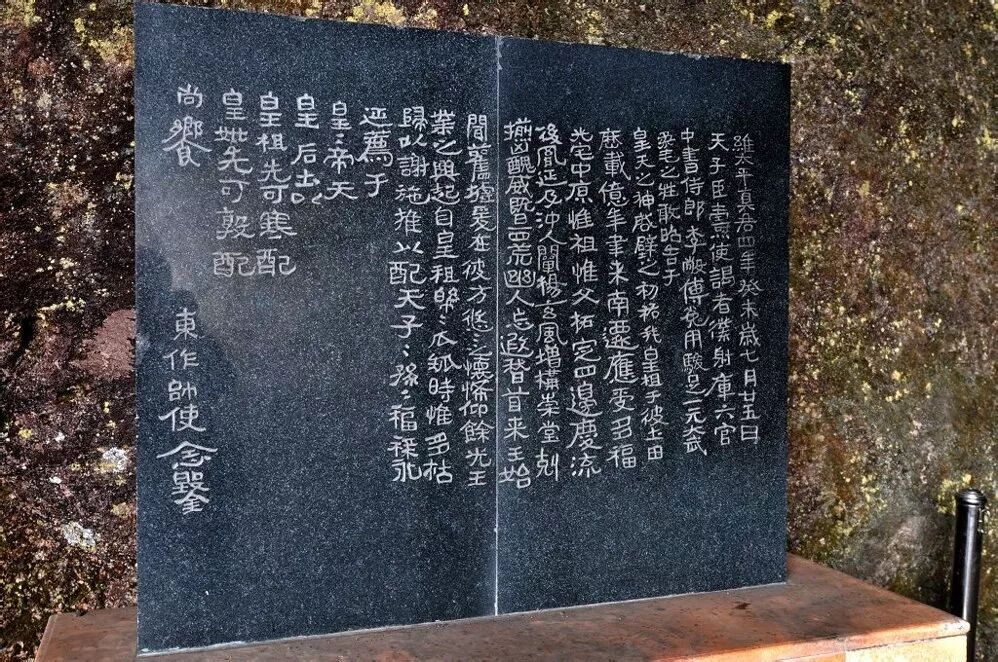 維太平真君四年癸未歲七月廿五日
天子臣燾使謁者僕射庫六官
中書侍郎李敞傅㝹用駿足一元大武
柔毛之牲敢昭告于
皇天之神啟辟之初祐我皇祖于彼土田
歷載億年聿來南遷應受多福
光宅中原惟祖惟父拓定四邊慶流
後胤延及沖人闡揚玄風增構崇堂剋
揃凶醜威暨四荒幽人忘遐稽首来王始
聞舊墟爰在彼方悠〻之懷希仰餘光王
業之興起自皇祖綿〻瓜瓞時惟多祜
歸以謝施推以配天子〻孫〻福祿永
延薦于
皇〻帝天
皇 后土以
皇祖先可寒配
皇妣先可敦配
尚饗
東作帥使念鑿